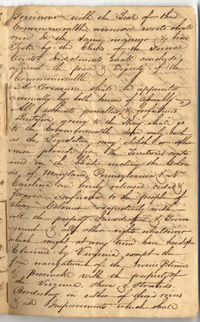 Governour with the Seal of the
Commonwealth annexed. Writs shall
run in the same manner, & be
tested by the Clerks of the several
Courts. Indictments shall conclude,
against the Peace & Dignity of the
Commonwealth.
A Treasurer shall be appointed
annually by both houses
All escheats penalties & forfeitures
heretofore going to the King shall go
to the Commonwealth save only such
as the Legislature may abolish or other
wise provide for. The Territories con
tained in the Charters erecting the Colon
ies of Maryland Pennsylvania &
Carolina are hereby released ceded &
forever confirmed to the people of
those Colonies respectively with
all the property Jurisdiction & Govern
ment & all other rights whatsoever
which might at any time have been
claimed by Virginia, except the
free navigation of the rivers Potomac
& pocomoke with the property of
the Virginia Shores & Strands
bordering on either of said rivers
& all Improvements which shall